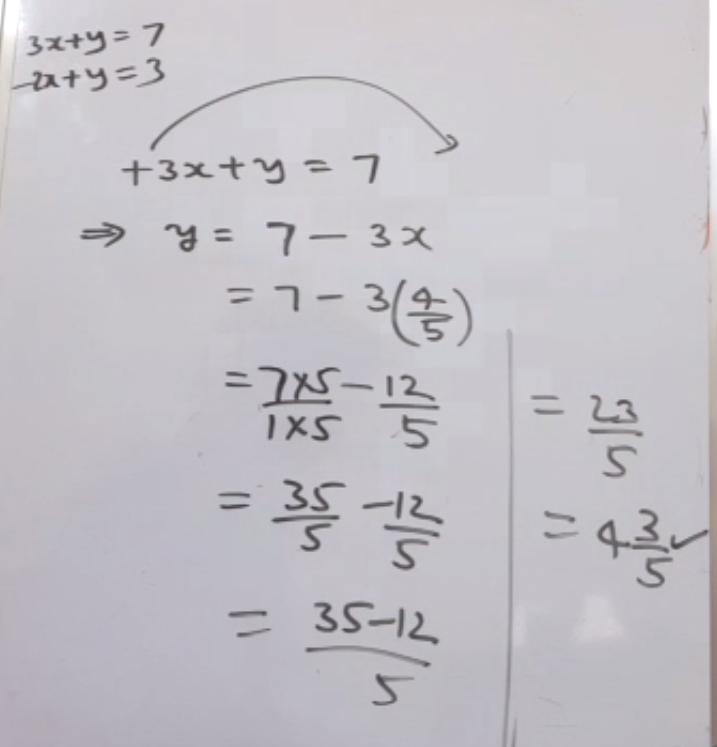 3x+y=7
-2x+y=3
+3x+y = 7
⇒ y = 7 - 3x
= 7 - 3(4/5)
= 7×5/1×5 - 12/5
= 35/5 - 12/5
= 35-12/5
= 23/5
= 4 3/5 ✓